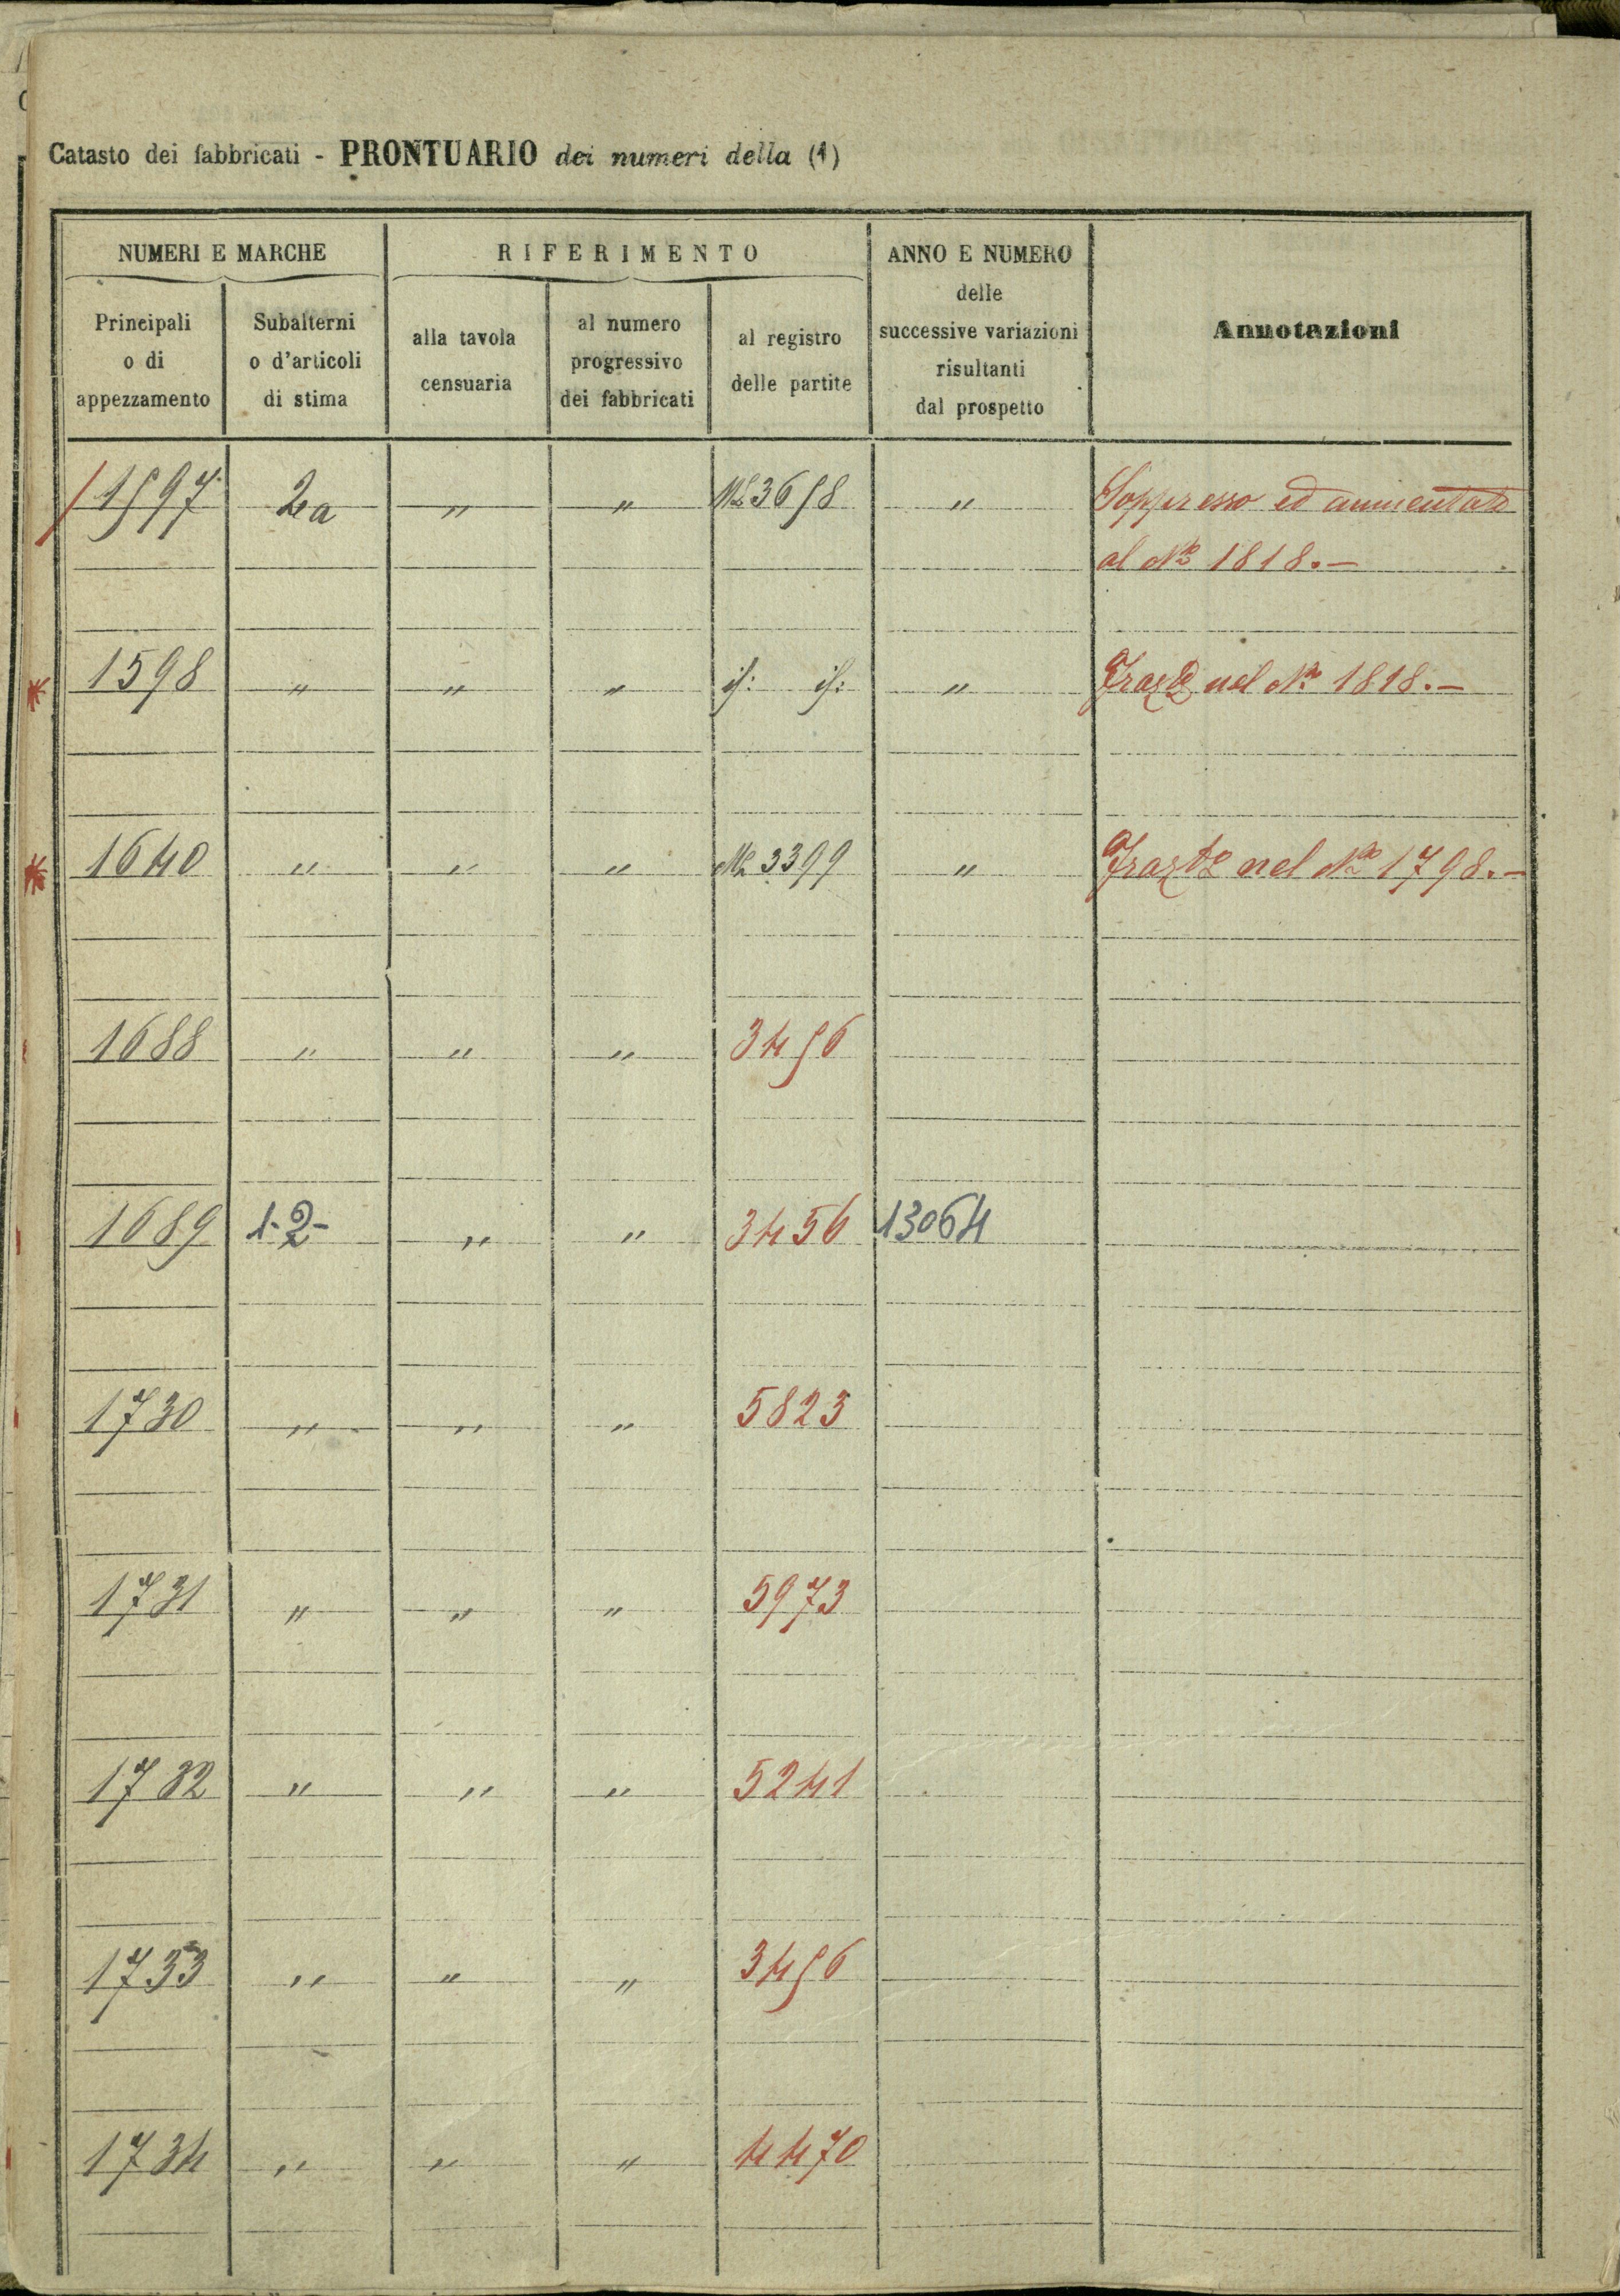 Catasto dei fabbricati - PRONTUARIO dei numeri della (1)
NUMERI E MARCHE
RIFERIMENTO
ANNO E NUMERO
delle
successive variazioni
risultanti
dal prospetto
Annotazioni
Principali
o di
appezzamento
Subalterni
o d'articoli
di stima
alla tavola
censuaria
al numero
progressivo
dei fabbricati
al registro
delle partite
1597 2a " " 3658 " Soppresso ed aumentato
al No 1818.-
1598 " " " " nel No 1818.-
1640 " " " 3399 " nel No 1798.-
1688 " " " 3456
1689 1-2- " " 3456 13064
1730 " " " 5823
1731 " " " 5973
1732 " " " 5241
1733 " " " 3456
1734 " " " 4470